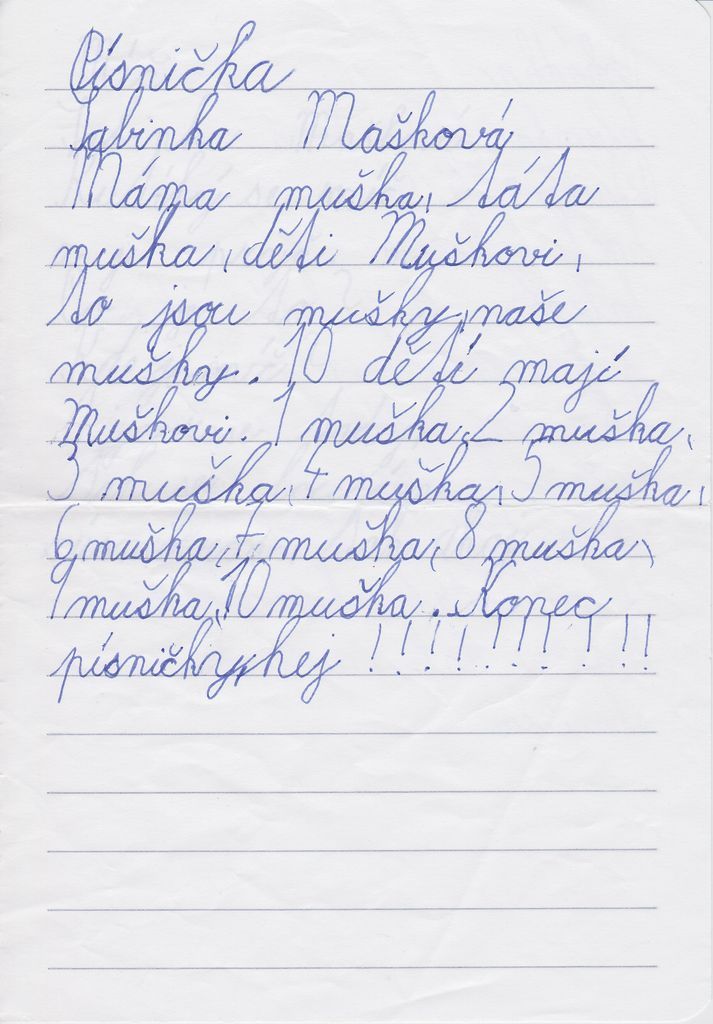 Písnička
Sabinka Mašková
Máma muška, táta
muška, děti Muškovi,
to jsou mušky, naše
mušky. 10 dětí mají
Muškovi. 1 muška, 2 muška,
3 muška, 4 muška, 5 muška,
6 muška, 7 muška, 8 muška,
9 muška, 10 muška. Konec
písničky, hej !!!!!!!!!!